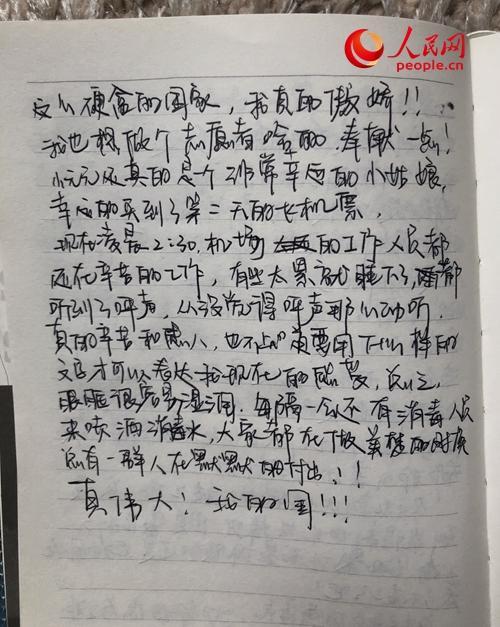 人民网
people.cn
这么硬谷的国家，我真的傲娇!!
我也想做个志愿者啥的.奉献一点!
小元元还真的是个非常幸运的小姑娘,
幸运的买到了第二天的飞机票,
现在凌晨2:30,机场的工作人员都
还在辛苦的工作，有些太累就睡下了,
听到了呼声，从没觉得呼声那么动听.
真的辛苦和感人，也不知道要用什么样的
文字才可以表达我现在的感受，总之,
眼眶很容易湿润.每隔一会还有消毒人员
来喷洒消毒水,大家都在做英雄的时候
总有一群人在默默默的付出!!!
真伟大!我的国!!!